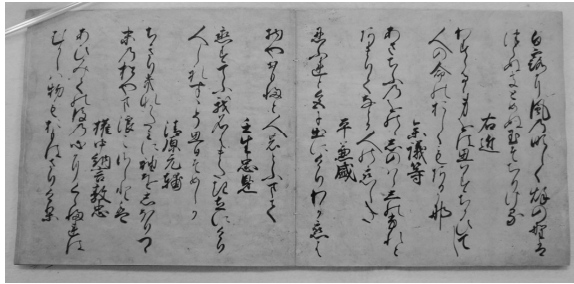 白露に風の吹しく秋の野は
つらぬきとめぬ玉そちりける
右近
わすらるゝ身をは思はすちかひてし
人の命のおしくもある哉
参議等
あさちふのをのゝしの原しのふれと
あまりてなとか人の恋しき
平兼盛
忍ふれと色に出にけりわか恋は
物やおもふと人のとふまて
壬生忠見
恋すてふ我名はまたき立にけり
人しれすこそ思ひそめしか
清原元輔
ちきりきなかたみに袖をしほりつゝ
末の松やま浪こさしとは
権中納言敦忠
あひみての後の心にくらふれは
むかしは物をおもはさりけり